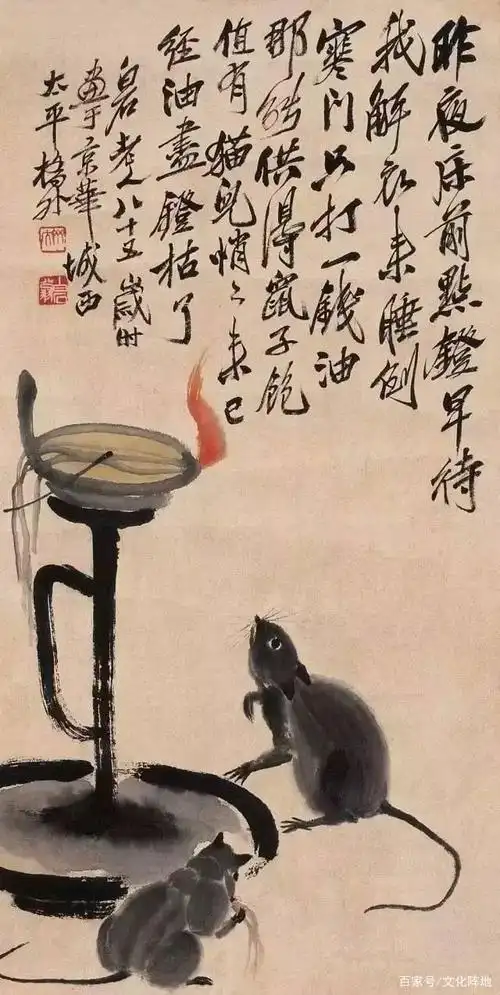 昨夜床前點鐙早待
我解衣来睡倒
寒门只打一錢油
那能供得鼠子飽
值有貓兒悄々来已
經油盡鐙枯了
白石老人八十五歲时
畫于京華城西
太平橋外
百家号/文化阵地